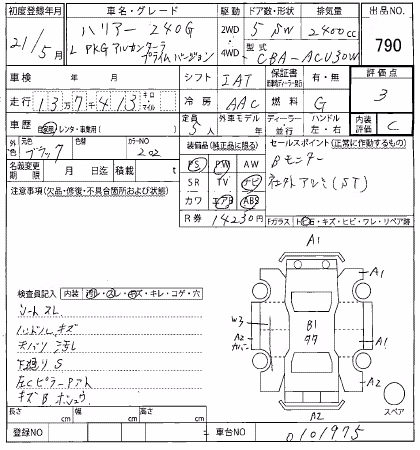 初度登録年月 車名・グレード 駆動 ドア数・形状 排気量 出品NO.
21/5月 ハリアー 240G 2WD 5 SW 2400cc 790
L PKG アルカンターラ プライムバージョン 4WD 型式 CBA-ACU30W
車検 年 月 シフト IAT 保証書 有・無 評価点
走行 13万7千413 キロ マイル 冷房 AAC 燃料 G 3
車歴 自家用・レンタ・事業用( ) 定員 5人 外車モデル 年 ディーラー 並行 ハンドル 左・右 内装評価 C
外色 元色 ブラック 色替 カラーNO 202 装備品(純正品に限る) セールスポイント(正常に作動するもの)
名義変更期限 月 日迄 積載 t PS PW AW Bモニター
注意事項(欠品・修復・不具合箇所および状態) SR TV ナビ 社外アルミ(ST)
カワ エアB ABS
R券 14230円
Fガラス トビ石・キズ・ヒビ・ワレ・リペア跡
A1
A1
検査員記入 内装 汚レ・スレ・キズ・キレ・コゲ・穴
シートスレ
ハンドルキズ W3 B1
天バリ汚レ A2 カバー 77
下廻りS
左Cピラー Pアト A1
キズB ホシュウ A2 スペア
長さ cm 幅 cm 高さ cm
登録NO 車台NO 0101975